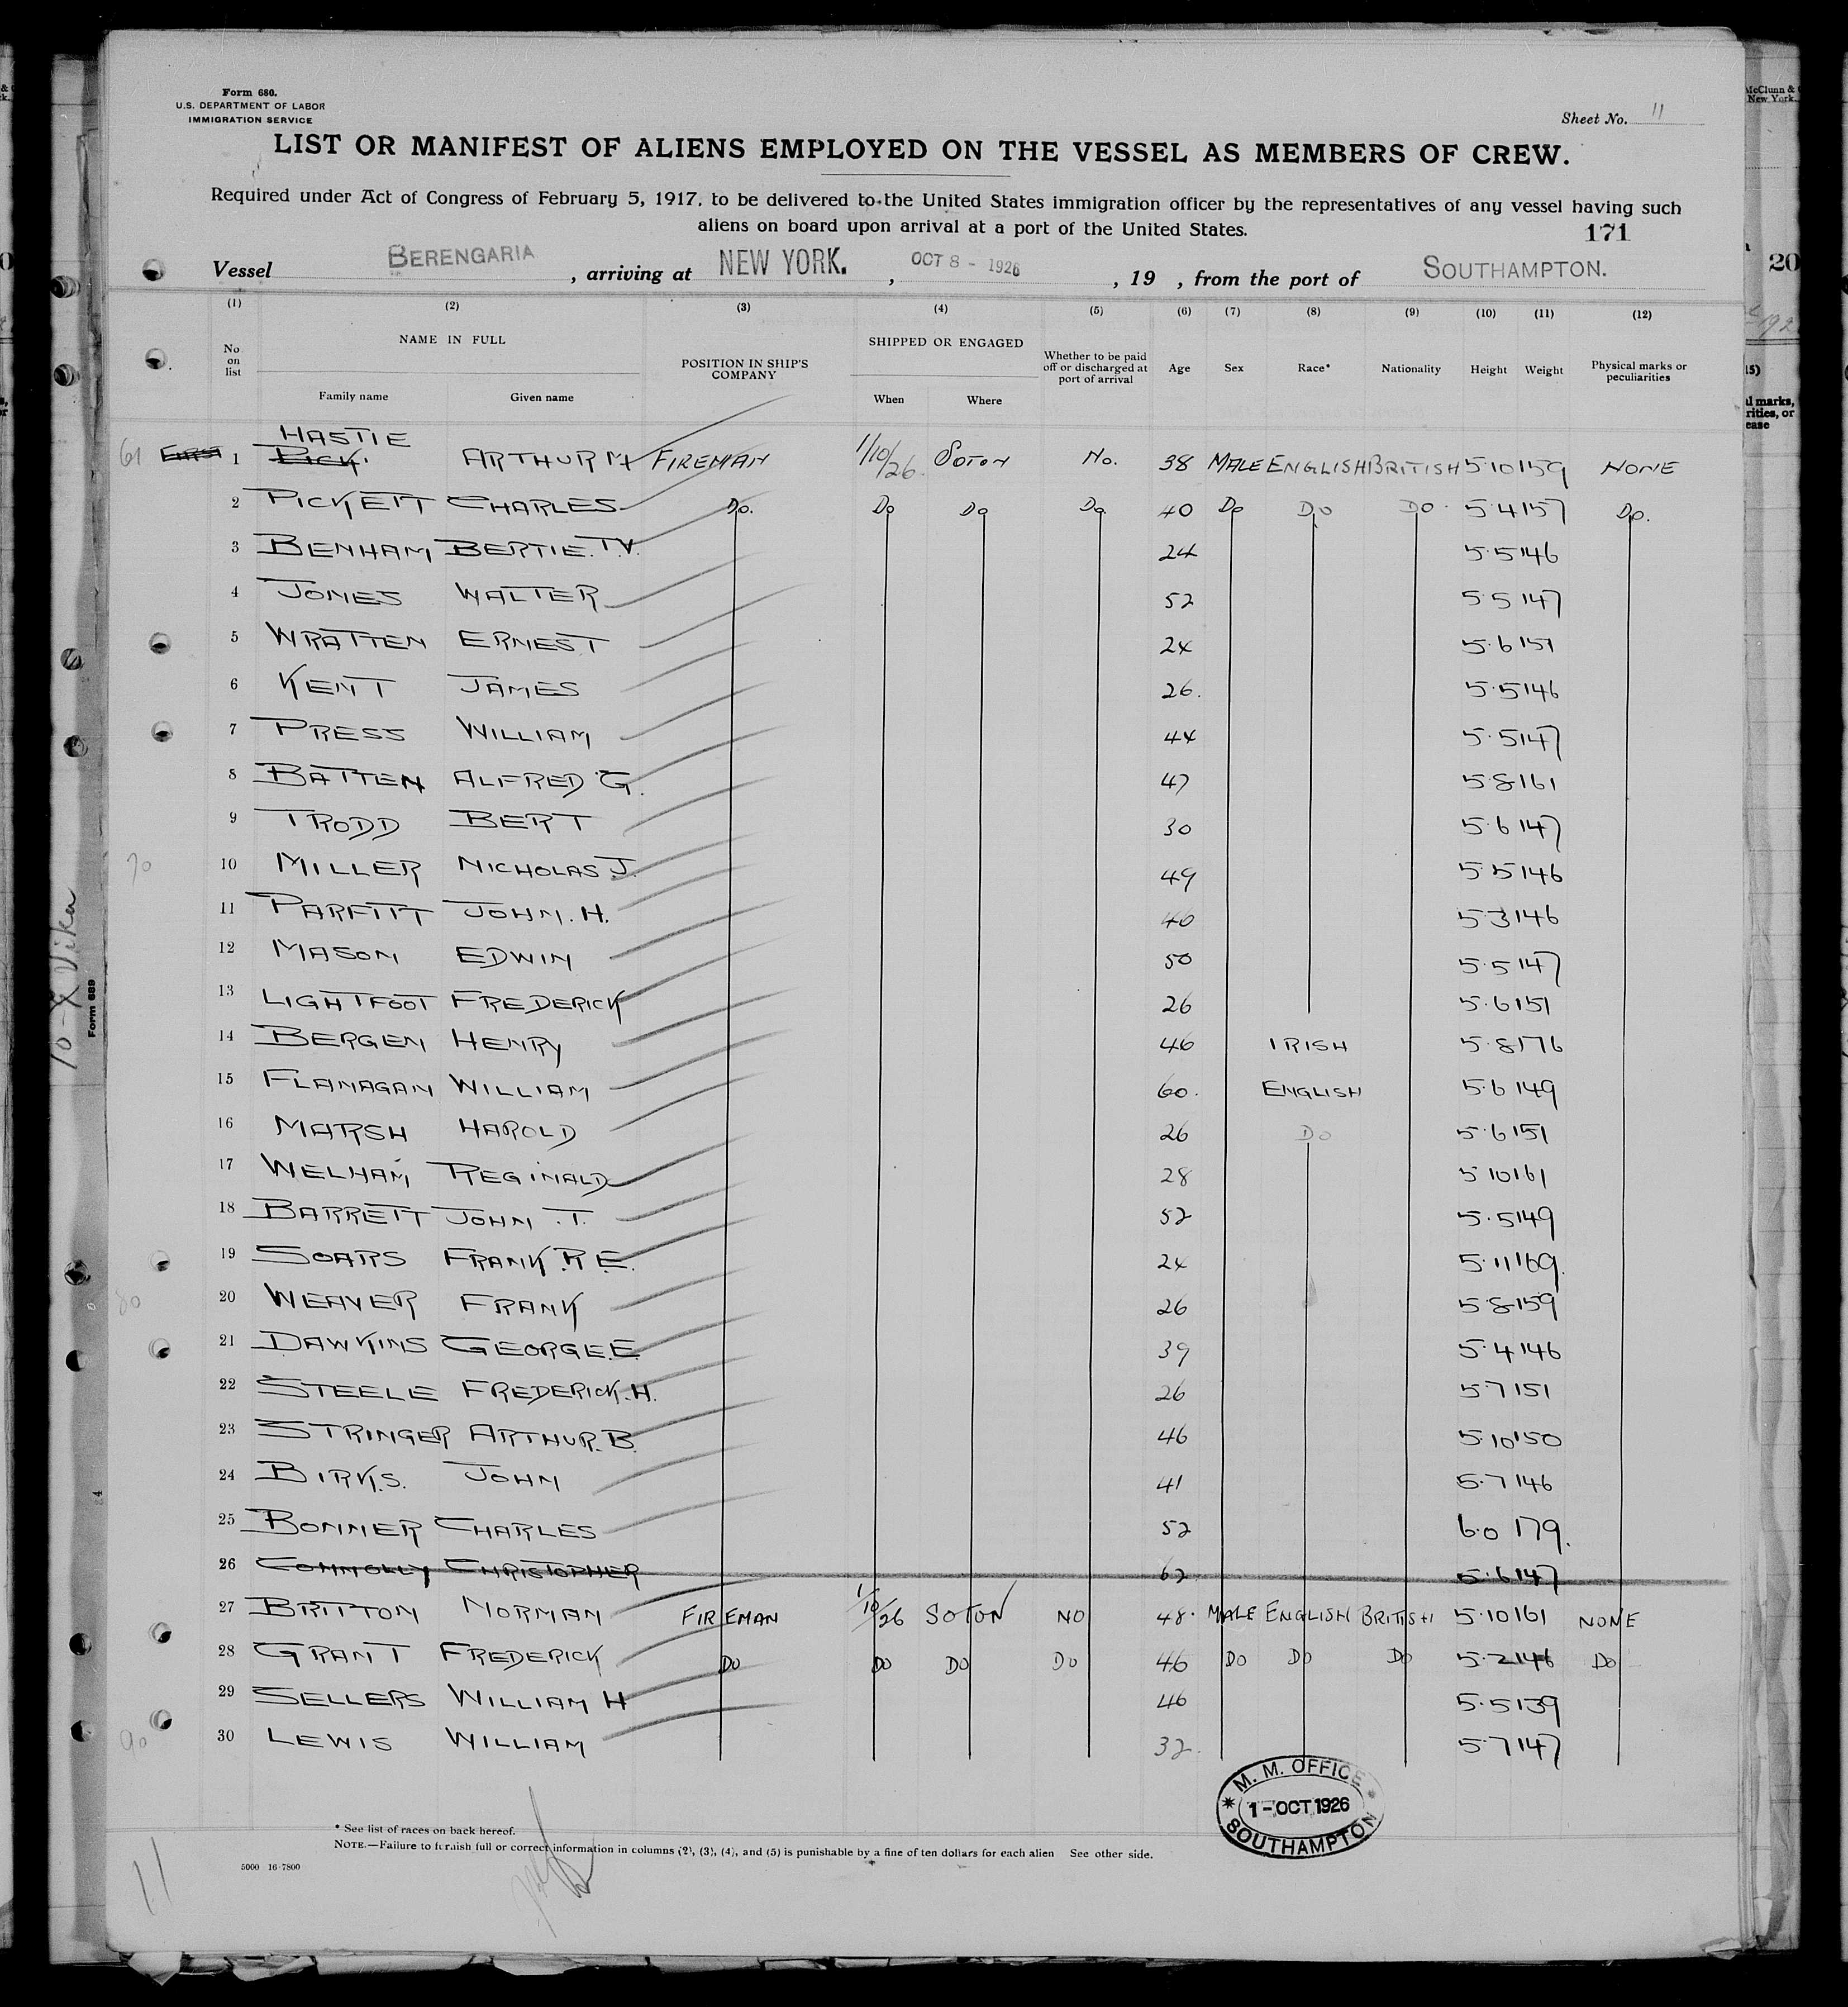 Form 680.
U.S. DEPARTMENT OF LABOR
IMMIGRATION SERVICE
Sheet No. 11
LIST OR MANIFEST OF ALIENS EMPLOYED ON THE VESSEL AS MEMBERS OF CREW.
Required under Act of Congress of February 5, 1917, to be delivered to the United States immigration officer by the representatives of any vessel having such
aliens on board upon arrival at a port of the United States.
171
Vessel BERENGARIA, arriving at NEW YORK., OCT 8 - 1926, 19 , from the port of SOUTHAMPTON.
(1) (2) (3) (4) (5) (6) (7) (8) (9) (10) (11) (12)
No on list NAME IN FULL Family name Given name POSITION IN SHIP'S COMPANY SHIPPED OR ENGAGED When Where Whether to be paid off or discharged at port of arrival Age Sex Race* Nationality Height Weight Physical marks or peculiarities
HASTIE
61 1 ARTHUR FIREMAN 1/10/26. SOTON No. 38 MALE ENGLISH BRITISH 5·10 159 NONE
2 PICKETT CHARLES Do. Do Do Do 40 Do Do Do. 5·4 157 Do.
3 BENHAM BERTIE. 24 5·5 146
4 JONES WALTER 52 5·5 147
5 WRATTEN ERNEST 24 5·6 151
6 KENT JAMES 26. 5·5 146
7 PRESS WILLIAM 44 5·5 147
8 BATTEN ALFRED G. 47 5·8 161
9 TRODD BERT 30 5·6 147
70 10 MILLER NICHOLAS J. 49 5·5 146
11 PARFITT JOHN. H. 40 5·3 146
12 MASON EDWIN 50 5·5 147
13 LIGHTFOOT FREDERICK 26 5·6 151
14 BERGEN HENRY 46 IRISH 5·8 176
15 FLANAGAN WILLIAM 60. ENGLISH 5·6 149
16 MARSH HAROLD 26 Do 5·6 151
17 WELHAM REGINALD 28 5 10 161
18 BARRETT JOHN. T. 52 5·5 149
19 SOARS FRANK. R E. 24 5·11 169.
80 20 WEAVER FRANK 26 5·8 159
21 DAWKINS GEORGE.E 39 5·4 146
22 STEELE FREDERICK.H. 26 5·7 151
23 STRINGER ARTHUR.B. 46 5·10 150
24 BIRKS. JOHN 41 5·7 146
25 BONNER CHARLES 52 6·0 179.
26 CONNOLLY CHRISTOPHER 62 5·6 147
27 BRITTON NORMAN FIREMAN 1/10/26 SOTON NO 48. MALE ENGLISH BRITISH 5·10 161 NONE
28 GRANT FREDERICK DO DO DO DO 46 DO DO DO 5·2 146 DO
29 SELLERS WILLIAM H 46 5·5 139
90 30 LEWIS WILLIAM 32. 5·7 147
M. M. OFFICE
1 - OCT 1926
SOUTHAMPTON
* See list of races on back hereof.
NOTE.—Failure to furnish full or correct information in columns (2), (3), (4), and (5) is punishable by a fine of ten dollars for each alien See other side.
5000 16-7800
11
Form 689
McClunn &
New York
20